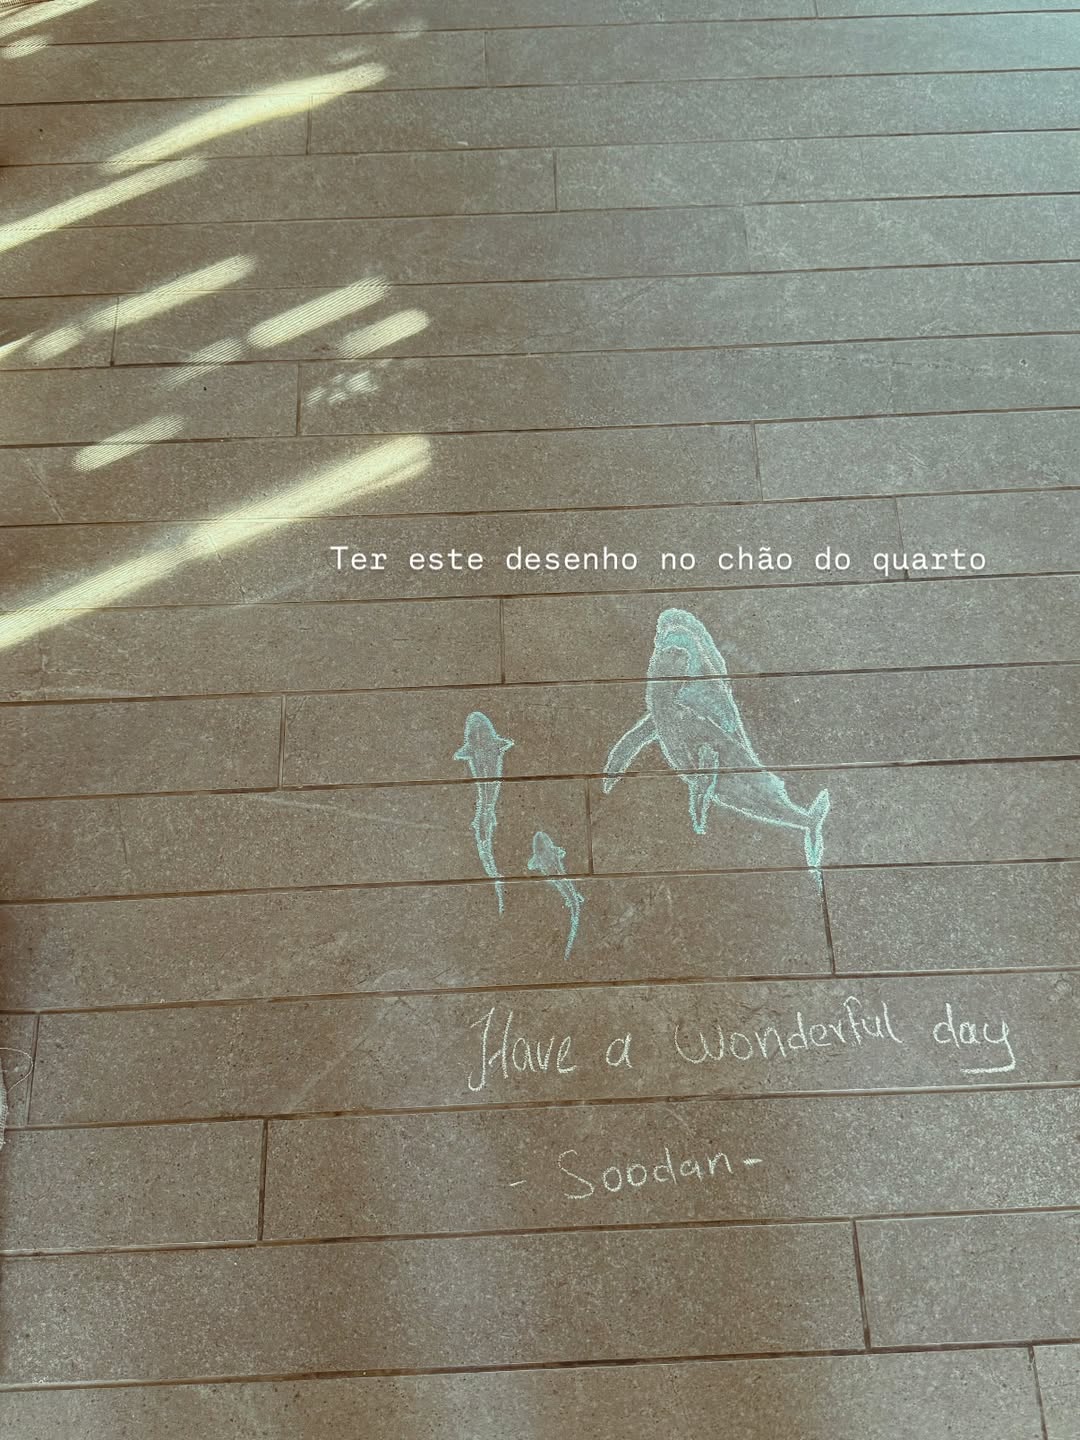 Ter este desenho no chão do quarto
Have a wonderful day
- Soodan -